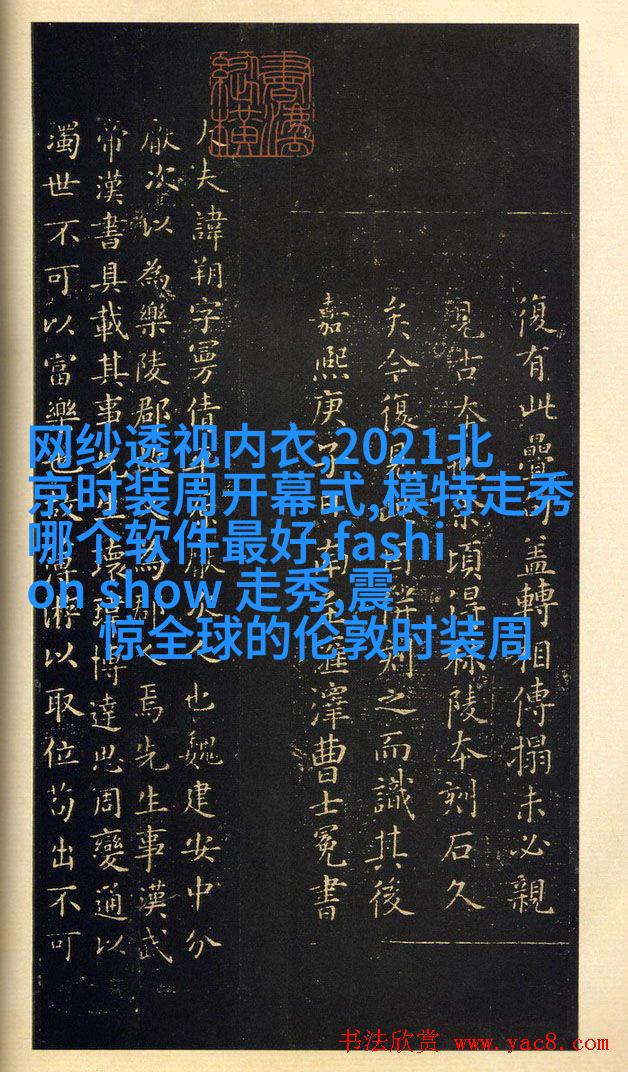 復有此疊蓋轉相傳搨未必親
見古本頃得秣陵本刻石久
矣今復見別之而識其後
嘉熙庚子南澤曹士冕書
大夫諱朔字曼倩人也魏建安中分
厭次以為樂陵郡人焉先生事漢武
帝漢書具載其事先生瓌瑋博達思周變通以
濁世不可以富樂也故游以取位苟出不可
网纱透视内衣,2021北
京时装周开幕式,模特走秀
哪个软件最好,fashi
on show 走秀,震
惊全球的伦敦时装周
书法欣赏 www.yac8.com